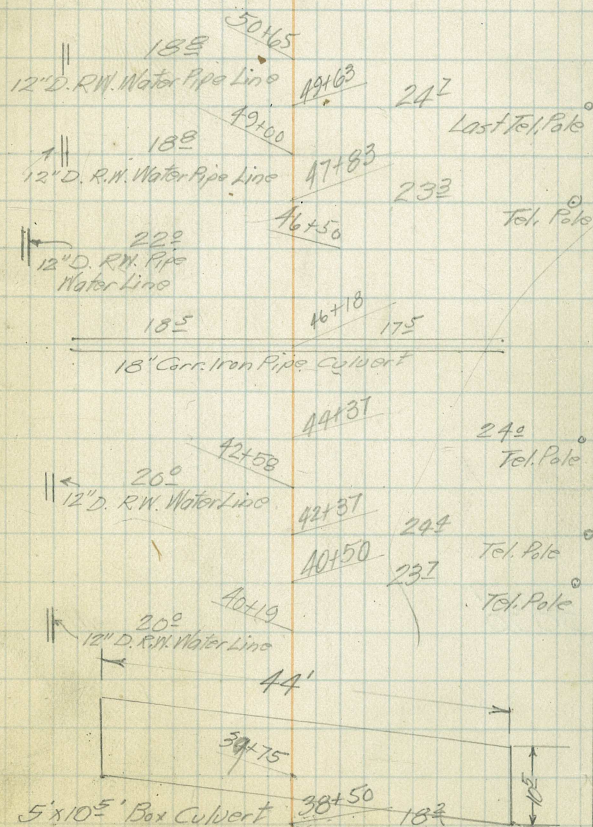 50+65
18 8
12" D. R.W. Water Pipe Line
49+63
24 7
Last Tel. Pole
49+00
18 8
12" D. R.W. Water Pipe Line
47+83
23 3
Tel. Pole
46+50
22 0
12" D. R.W. Pipe
Water Line
46+18
18 5
17 5
18" Corr. Iron Pipe Culvert
44+37
24 0
Tel. Pole
42+58
20 0
12" D. R.W. Water Line
42+37
24 4
Tel. Pole
40+50
23 7
Tel. Pole
40+19
20 0
12" D. R.W. Water Line
44'
39+75
10 5
5'x10 5' Box Culvert
38+50